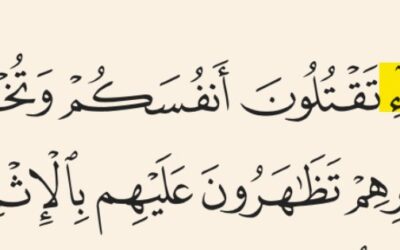 ءِ تَقْتُلُونَ أَنفُسَكُمْ وَتُخْ
رِهِمْ تَظَٰهَرُونَ عَلَيْهِم بِٱلْإِثْ